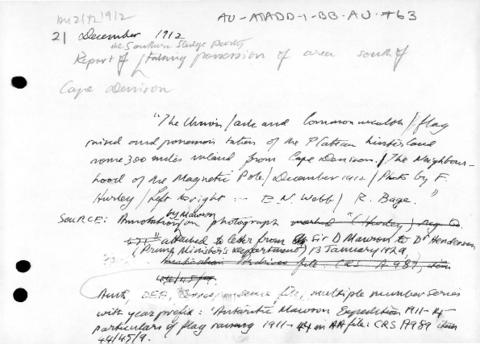 in 21/12/1912
AU-ATADD-1-BB-AU-#63
21 December 1912
the Southern Sledge Party
Report of / taking possession of area south of
Cape Denison
"The Union/Jack and Commonwealth/flag
raised and possession taken of the Plateau hinterland
some 300 miles inland from Cape Denison./The Neighbour-
hood of the Magnetic Pole/December 1912/Photo by F.
Hurley/Left to right :- E.N. Webb/ R. Bage."
SOURCE: Annotation/on photograph marked "(Hurley)
by Mawson
attached to letter from Sir D Mawson to Dr Henderson,
(Prime Minister's Department) 13 January 1929.
file: CRS A989, item
44/45/9.
Aust, DEA, Correspondence file, multiple number series
with year prefix: 'Antarctic Mawson Expedition 1911-14
particulars of flag raising 1911-14 in AA file: CRS A989 item
44/45/9.